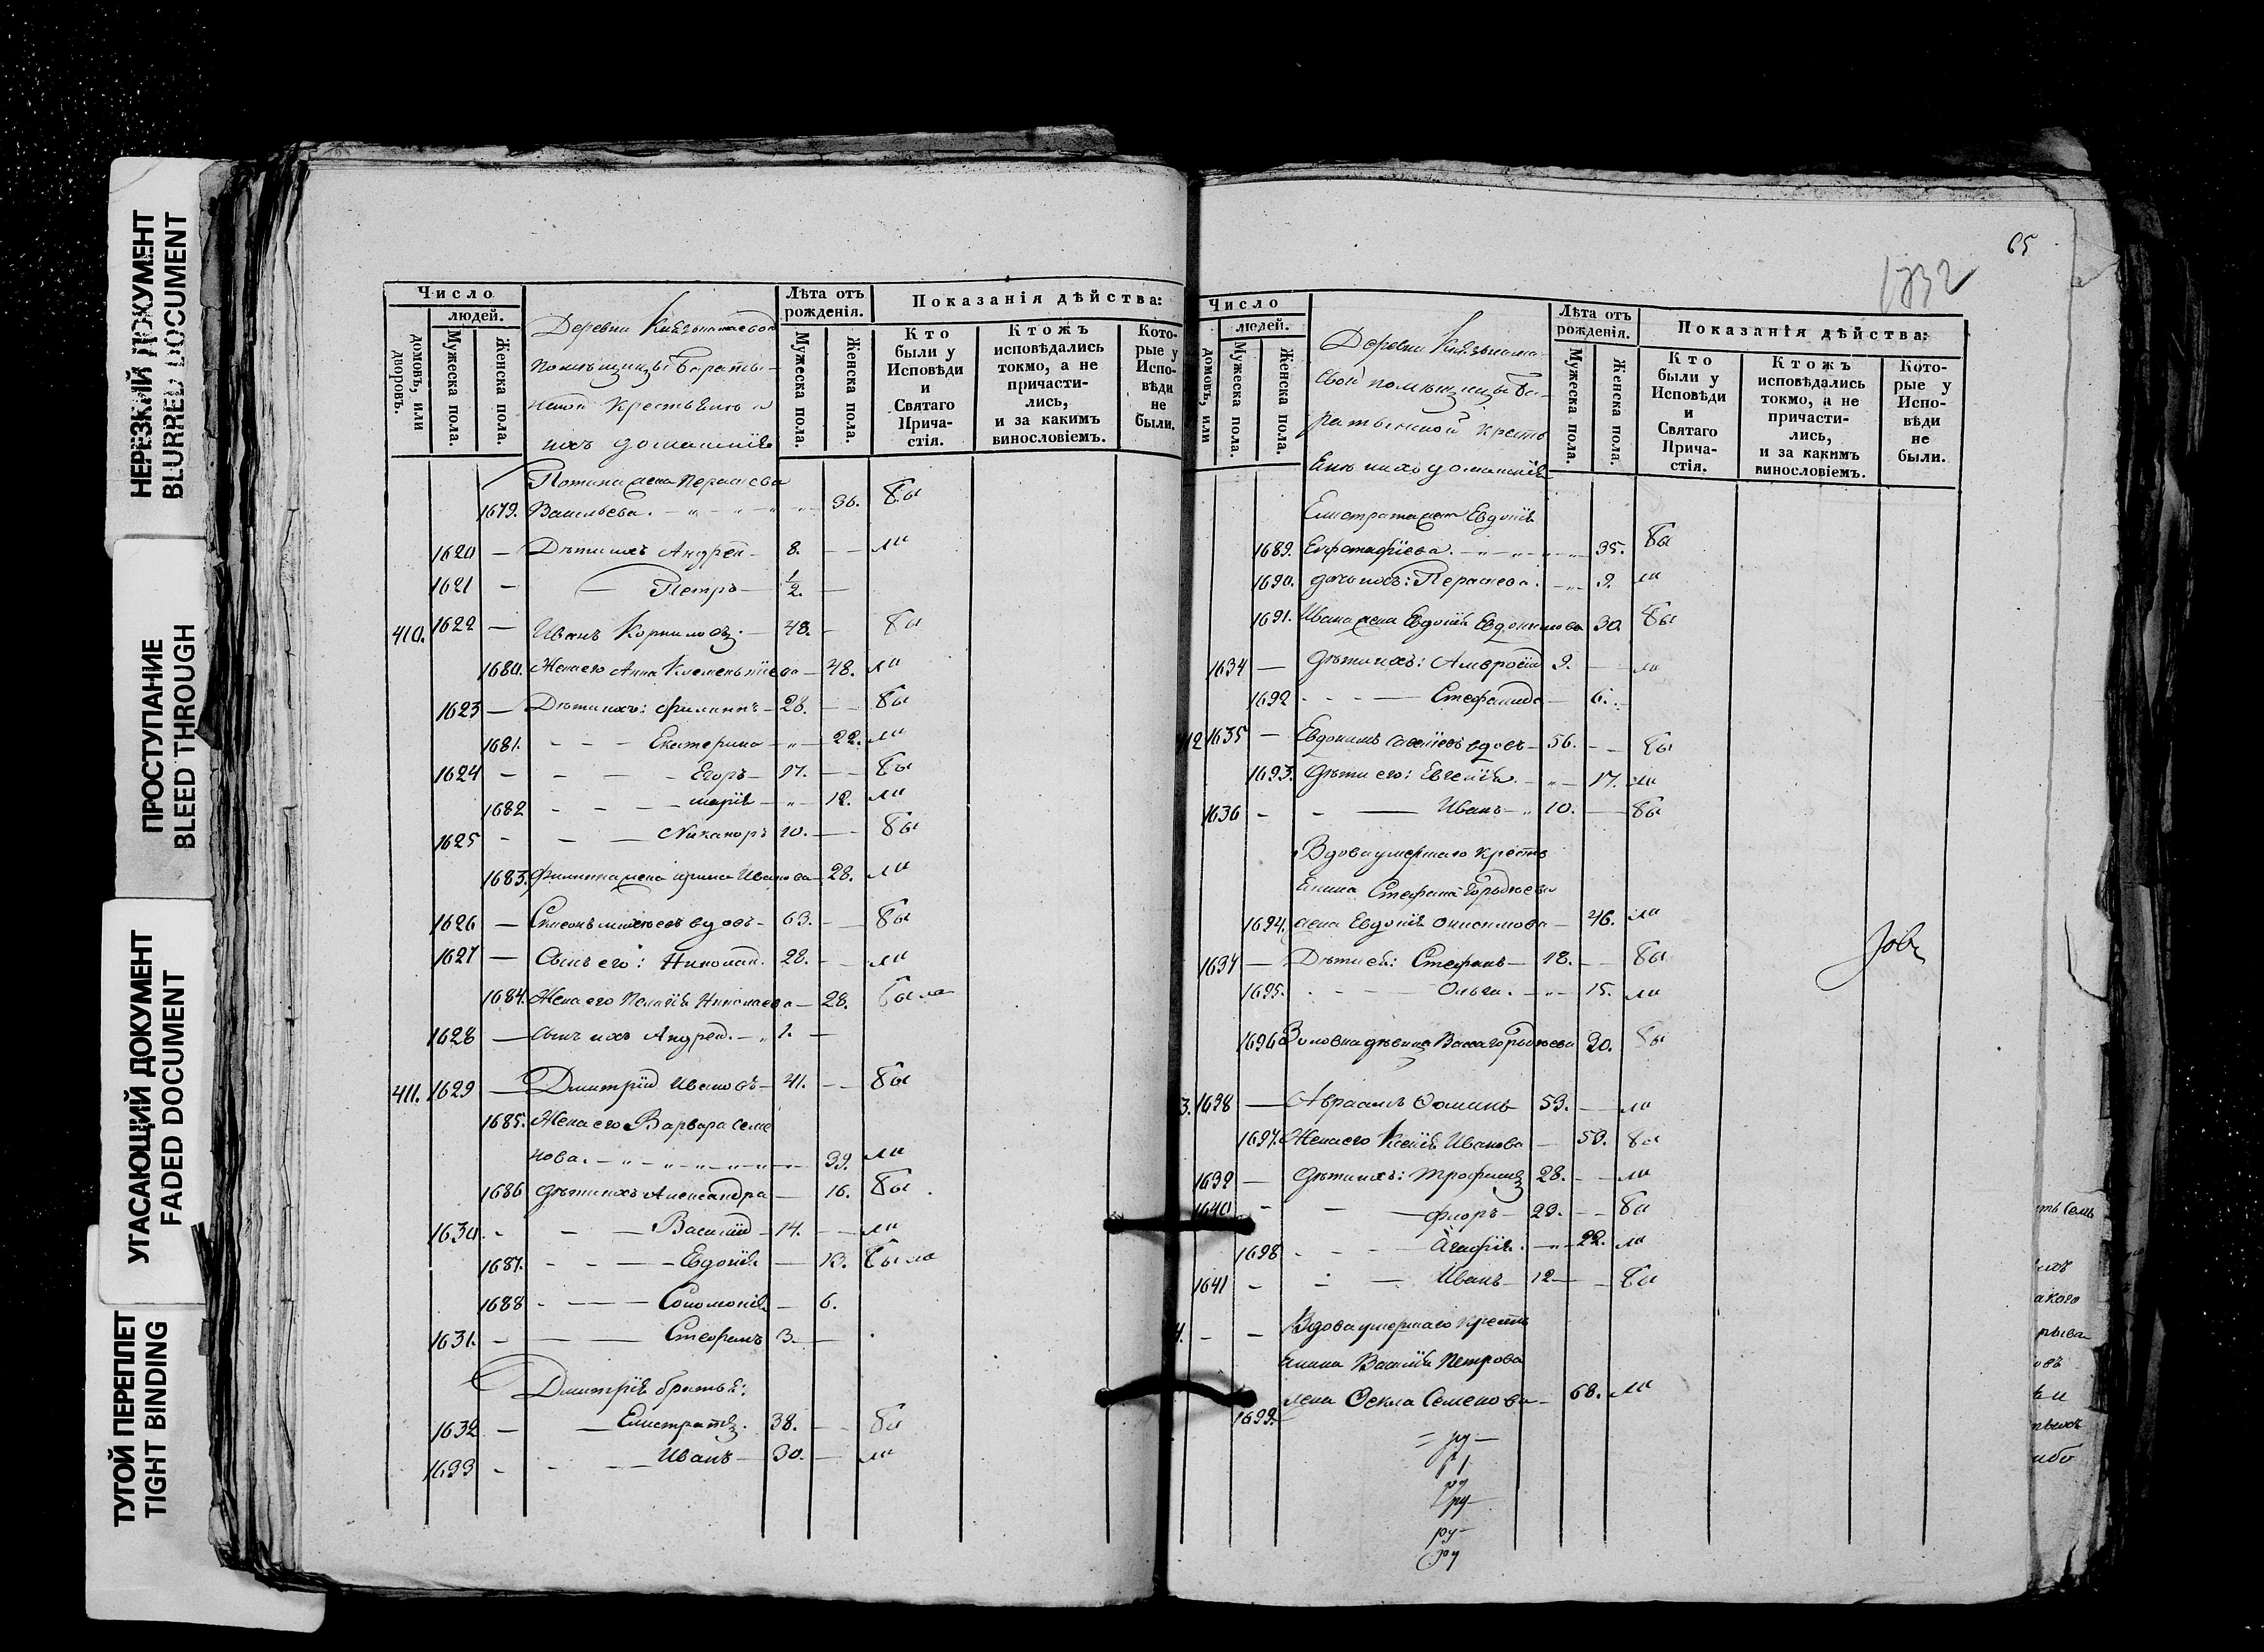 НЕРЕЗКИЙ ДОКУМЕНТ
BLURRED DOCUMENT
ПРОСТУПАНИЕ
BLEED THROUGH
УГАСАЮЩИЙ ДОКУМЕНТ
FADED DOCUMENT
ТУГОЙ ПЕРЕПЛЕТ
TIGHT BINDING
Число
людей.
домовъ, или дворовъ.
Мужеска пола.
Женска пола.
Деревни
помѣщицы Бараты-
нской крестьяне и
ихъ домашнїе
Лѣта отъ рожденія.
Мужеска пола.
Женска пола.
Показанія дѣйства:
Кто были у Исповѣди и Святаго Прича-стія.
Ктожъ исповѣдались токмо, а не причасти-лись, и за какимъ винословіемъ.
Кото-рые у Испо-вѣди не были.
Потапа жена
1679. Васильева. 36. бы
1620 — Дѣти ихъ Андрей — 8. — ли
1621 — Петръ — 1/2. —
410. 1622 — Иванъ Корниловъ. — 48. — бы
1680. Жена его Анна — 48. ли
1623 — Дѣти ихъ: Филиппъ — 28. — бы
1681. Екатерина — 22. ли
1624 — Егоръ — 17. — бы
1682 — марїя — 12. ли
1625 — Никаноръ 10. — бы
1683. Филиппа жена ирина Иванова — 28. ли
1626 — вдовъ — 63. — бы
1627 — Сынъ его: Николай. 28. — ли
1684. Жена его Николаева — 28. была
1628 — сынъ ихъ Андрей. — 1. —
411. 1629 — Дмитрїй Ивановъ — 41. — бы
1685. Жена его Варвара Семе
нова. — 39. ли
1686 дѣти ихъ Александра — 16. бы
1630. Василїй — 14. — ли
1687. Евдокїя — 13. была
1688 Соломонїя — 6.
1631. — Стефанъ 3. —
Дмитрїя братья:
1632 — Елистратъ. 38. — бы
1633 Иванъ — 30. — ли
65
1832
Число
людей.
домовъ, или
Мужеска пола.
Женска пола.
Деревни
помѣщицы Ба-
ратынской кресть
яне и ихъ домашнїе
Лѣта отъ рожденія.
Мужеска пола.
Женска пола.
Показанія дѣйства:
Кто были у Исповѣди и Святаго Прича-стія.
Ктожъ исповѣдались токмо, а не причасти-лись, и за какимъ винословіемъ.
Кото-рые у Испо-вѣди не были.
Елистрата жена Евдокїя
1689. 35. бы
1690. дочь ихъ: 9. ли
1691. Ивана жена Евдокїя Евдокимова 30. бы
1634 — дѣти ихъ: Амвросїй 9. — ли
1692 Стефанида — 6.
412 1635 — Евдокимъ вдовъ — 56. — бы
1693. дѣти его: Евгенїя. 17. ли
1636 — Иванъ — 10. — бы
Вдова умершаго кресть
янина Стефана Гордеева
1694. жена Евдокїя Онисимова — 46. ли
1637 — Дѣти ей: Стефанъ — 18. — бы
1695. Ольга. — 15. ли
1696 Золовка дѣвица Васса Гордеева 20. бы
3. 1638 — Авраамъ Ѳоминъ 59. — ли
1697. Жена его Ксенїя Иванова — 50. бы
1639 — дѣти ихъ: Трофимъ 28. — ли
1640 — Флоръ — 23. — бы
1698 Агафїя. — 22. ли
1641 — Иванъ — 12 — бы
4. — Вдова умершаго кресть
янина Василїя Петрова
1699. жена Ѳекла Семенова — 68. ли